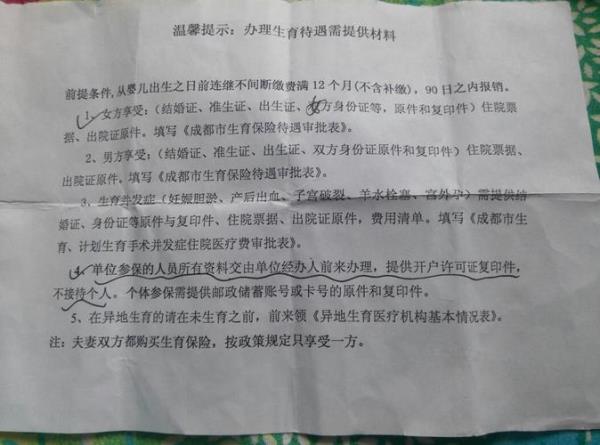 温馨提示：办理生育待遇需提供材料
前提条件，从婴儿出生之日前连继不间断缴费满 12 个月(不含补缴)，90 日之内报销。
1、女方享受：(结婚证、准生证、出生证、女方身份证等，原件和复印件）住院票
据、出院证原件。填写《成都市生育保险待遇审批表》。
2、男方享受：(结婚证、准生证、出生证、双方身份证原件和复印件）住院票据、
出院证原件。填写《成都市生育保险待遇审批表》。
3、生育并发症（妊娠胆淤、产后出血、子宫破裂、羊水栓塞、宫外孕）需提供结
婚证、身份证等原件与复印件、住院票据、出院证原件，费用清单。填写《成都市生
育、计划生育手术并发症住院医疗费审批表》。
4、单位参保的人员所有资料交由单位经办人前来办理，提供开户许可证复印件，
不接待个人。个体参保需提供邮政储蓄账号或卡号的原件和复印件。
5、在异地生育的请在未生育之前，前来领《异地生育医疗机构基本情况表》。
注：夫妻双方都购买生育保险，按政策规定只享受一方。